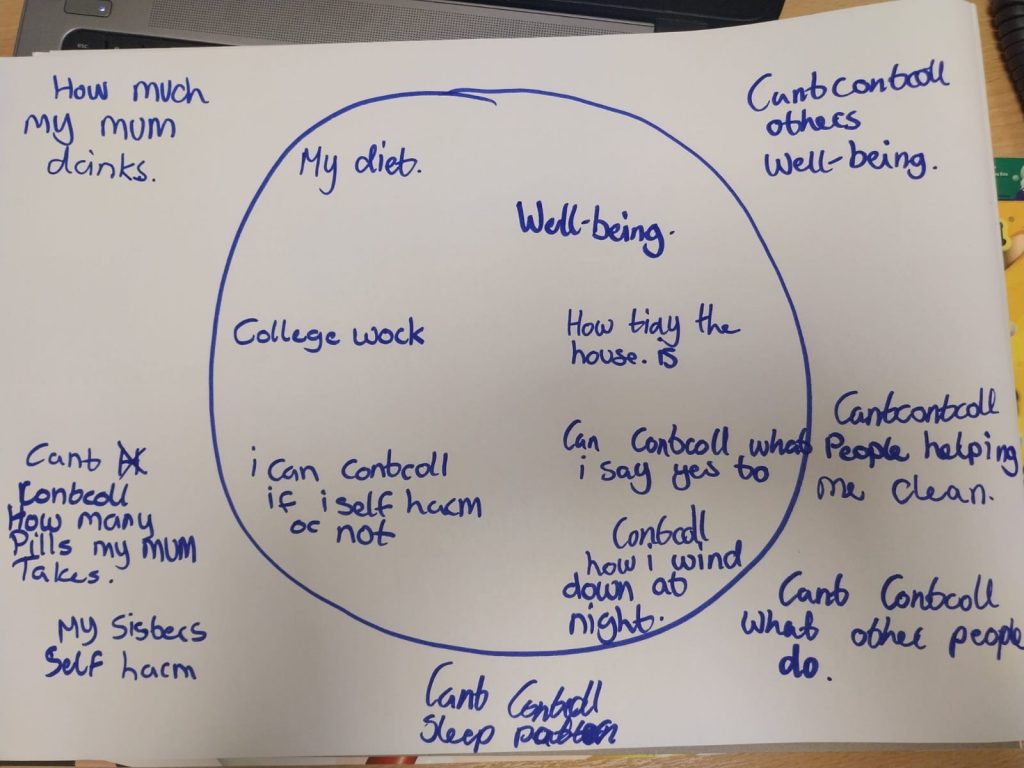 How much
my mum
drinks.
My diet.
Well-being.
Cant controll
others
Well-being.
College work
How tidy the
house. is
i can controll
if i self harm
or not
Can controll what
i say yes to
Controll
how i wind
down at
night.
Cant
Controll
How many
Pills my MUM
Takes.
My Sisters
Self harm
Cant controll
People helping
me clean.
Cant Controll
what other people
do.
Cant Controll
Sleep pattern